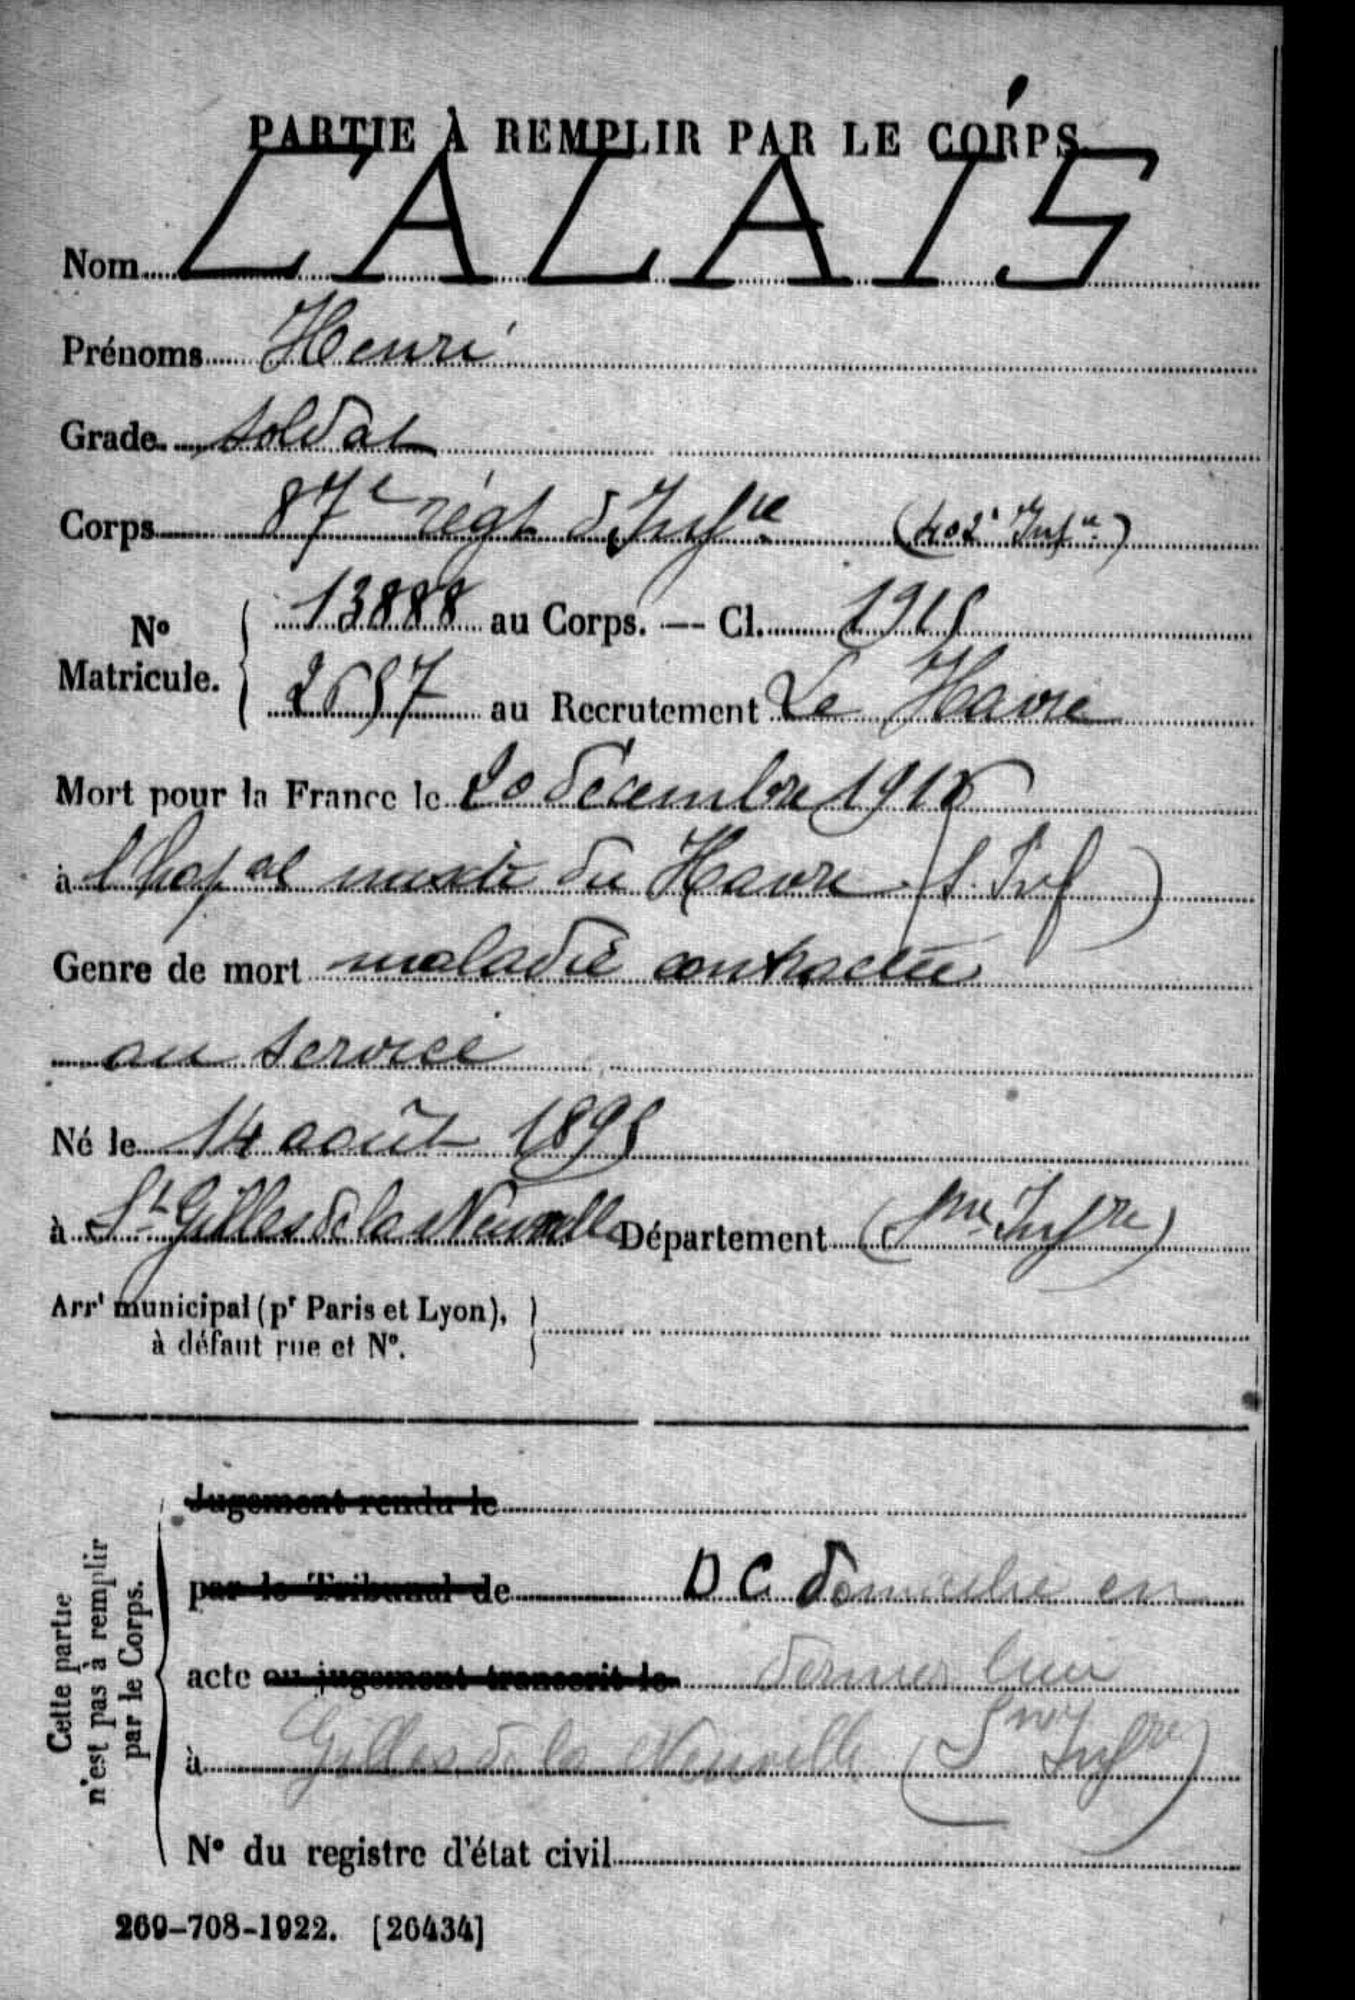 PARTIE À REMPLIR PAR LE CORPS.
Nom CALAIS
Prénoms Henri
Grade soldat
Corps 87e régt d'Infie (402e Infie)
No Matricule. 13888 au Corps. — Cl. 1915
2657 au Recrutement Le Havre
Mort pour la France le 20 décembre 1916
à l'hopal mixte du Havre (S. Inf)
Genre de mort maladie contractée
au service
Né le 14 août 1895
à St Gilles de la Neuville Département (Sne Infre)
Arrt municipal (pr Paris et Lyon),
à défaut rue et No.
Cette partie
n'est pas à remplir
par le Corps.
Jugement rendu le
par le Tribunal de D C domicilié en
acte ou jugement transcrit le dernier lieu
à Gilles de la Neuville (S Infre)
No du registre d'état civil
269-708-1922. [26434]